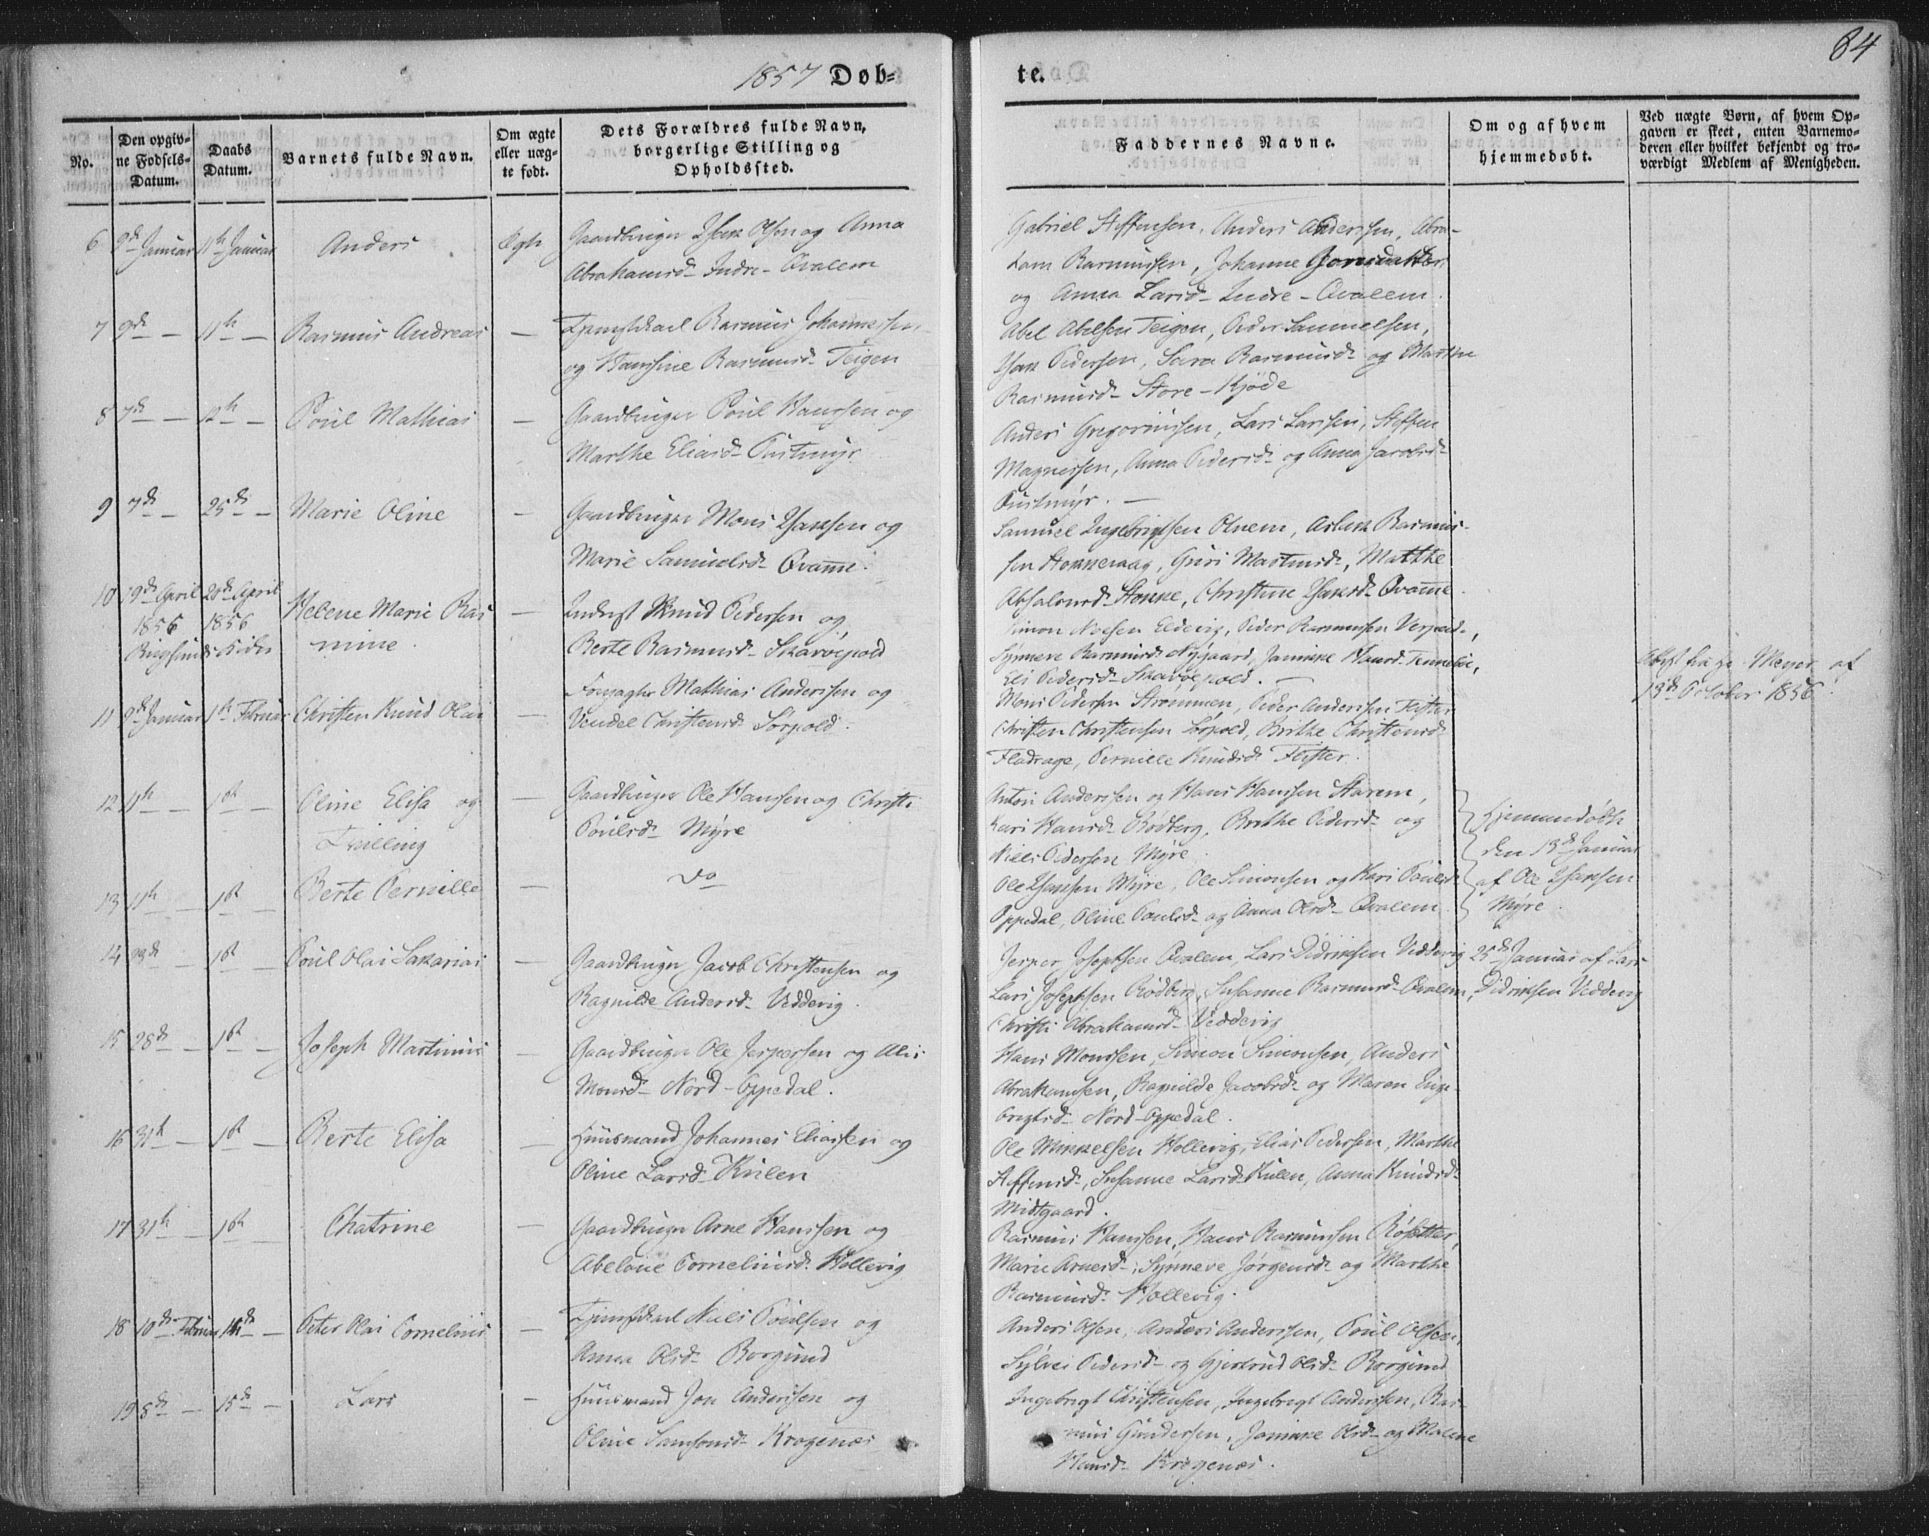 1857 Døb-
te.
84
No.
Den opgiv-
ne Fødsels-
Datum.
Daabs
Datum.
Barnets fulde Navn.
Om ægte
eller uæg-
te født.
Dets Forældres fulde Navn,
borgerlige Stilling og
Opholdssted.
Faddernes Navne.
Om og af hvem
hjemmedøbt.
Ved uægte Børn, af hvem Op-
gaven er skeet, enten Barnemo-
deren eller hvilket bekjendt og tro-
værdigt Medlem af Menigheden.
6 9de Januar 11te Januar Anders Ægte Gaardbruger Isak Olsen og Anna
Abrahamsd- Indre-Qvalem
Gabriel Steffensen, Anders Andersen, Abra-
ham Rasmussen, Johanne
og Anna Larsd- Indre-Qvalem.
7 9de - 11te - Rasmus Andreas - Tjenestkarl Rasmus Johannessen
og Hansine Rasmusd- Teigen
Abel Abelsen Teigen, Peder Samuelsen,
Isak Pedersen, Sara Rasmusd- og Marthe
Rasmusd- Store-Kjøde
8 7de - 12te - Poul Mathias - Gaardbruger Poul Hanssen og
Marthe Eliasd- Pustmyr
Anders Gregoriussen, Lars Larssen, Steffen
Magnessen, Anna Pedersd- og Anna Jacobsd-
Pustmyr. -
9 7de - 25de - Marie Oline - Gaardbruger Mons Isaksen og
Marie Samuelsd- Qvamme.
Samuel Ingebrigtsen Olnem, Aslak Rasmus-
sen Stokkevaag, Guri Martinsd-, Marthe
Absalonsd- Stokke, Christine Isaksd- Qvamme.
10 19de April 20de April
1856 1856
Kirke
Helene Marie Ras
mine.
- Inderst Knud Pedersen og
Berte Rasmusd- Skavøepold
Simon Nielsen Eldevig, Peder Rasmussen Verpold,
Synneve Rasmusd- Nygaard, Jannike Hansd-
Eli Pedersd- Skavøepold. -
Meyer af
13de October 1856.
11 9de Januar 1ste Februar Christen Knud Olai - Mathias Anderssen og
Vendel Christensd- Sørpold.
Mons Pedersen Strømmen, Peder Andersen Flister
Christen Christensen Sørpold, Brithe Christensd-
Fladrage, Pernille Knudsd- Flister.
12 11te - 1ste - Oline Elisa og - Gaardbruger Ole Hanssen og Christi
Tvilling Poulsd- Myre
Anton Anderssen og Hans Hanssen Starem,
Kari Hansd- Rødberg, Brithe Pedersd- og
Niels Pedersen Myre.
Hjemmedøbte
den 13de Januar
af Ole Isaksen
Myre.
13 11te - 1ste - Berte Pernille - Do
Ole Isaksen Myre, Ole Simonsen og Kari Poulsd-
Oppedal, Oline Poulsd- og Anna Olsd- Qvalem.
14 23de - 1ste - Poul Olai Sakarias - Gaardbruger Jacob Christensen og
Ragnilde Andersd- Veddevig.
Jesper Josephsen Qvalem, Lars Didriksen Veddevig
Lars Josephsen Rødberg, Susanne Rasmusd- Qvalem,
Christi Abrahamsd- Veddevig
25de Januar af Lars
Didriksen Veddevig
15 28de - 1ste - Joseph Martinus - Gaardbruger Ole Jespersen og Alis
Monsd- Nord-Oppedal.
Hans Monssen, Simon Simonsen, Anders
Abrahamsen, Ragnilde Jacobsd- og Maren Inge-
brigtsd- Nord-Oppedal.
16 31te - 1ste - Berte Elisa - Huusmand Johannes Eliassen og
Oline Larsd- Kvilen
Ole Mikkelsen Hollevig, Elias Pedersen, Marthe
Steffensd-, Susanne Larsd- Kvilen, Anna Knudsd-
Midtgaard.
17 31te - 1ste - Chatrine - Gaardbruger Arne Hanssen og
Abelone Corneliusd- Hollevig
Rasmus Hanssen, Hans Rasmussen Røsetter,
Marie Arnesd-, Synneve Jørgensd- og Marthe
Rasmusd- Hollevig.
18 10de Februar 14de - Peter Olai Cornelius - Tjenestkarl Niels Poulsen og
Anna Olsd- Borgund
Anders Olsen, Anders Anderssen, Poul Olsen,
Sylvei Pedersd- og Gjertrud Olsd- Borgund
19 8de - 15de - Lars - Huusmand Jon Anderssen og
Oline Samsonsd- Krogenæs
Ingebregt Christensen, Ingebregt Anderssen, Ras-
mus Gundersen, Jannike Olsd- og Malene
Hansd- Krogenæs.